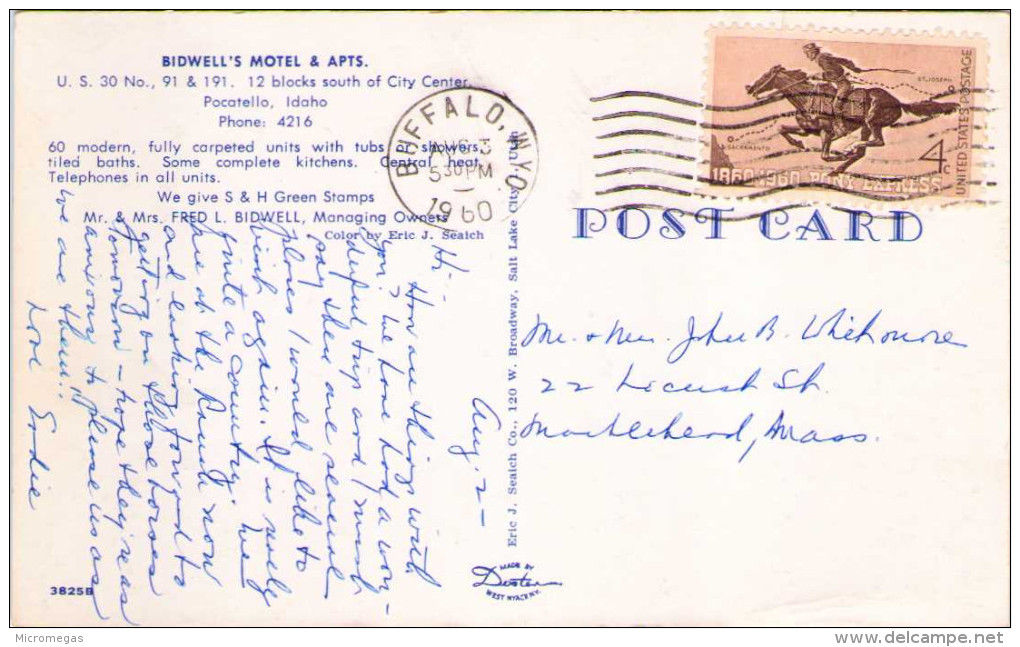 BIDWELL'S MOTEL & APTS.
U. S. 30 No., 91 & 191. 12 blocks south of City Center
Pocatello, Idaho
Phone: 4216
60 modern, fully carpeted units with tubs showers,
tiled baths. Some complete kitchens. Central heat.
Telephones in all units.
We give S & H Green Stamps
Mr. & Mrs. FRED L. BIDWELL, Managing Owners
Color by Eric J. Seaich
BUFFALO, WYO.
AUG 3
5 30 PM
1960
ST. JOSEPH
SACRAMENTO
1860-1960 PONY EXPRESS
4c
UNITED STATES POSTAGE
POST CARD
Aug. 2 -
Hi --
How are things with
you? We have had a won-
derful trip and I must
say there are several
places I would like to
visit again. It is really
quite a country. We're
here at the Ranch now
and looking forward to
getting on those horses
tomorrow - hope they're as
anxious to please us as
we are them!!
Love
Eric J. Seaich Co., 120 W. Broadway, Salt Lake City 1, Utah
Mr. & Mrs. John B. Whitmore
22 Locust St.
Marblehead, Mass.
MADE BY
Dexter
WEST NYACK N.Y.
3825B
Micromegas
www.delcampe.net